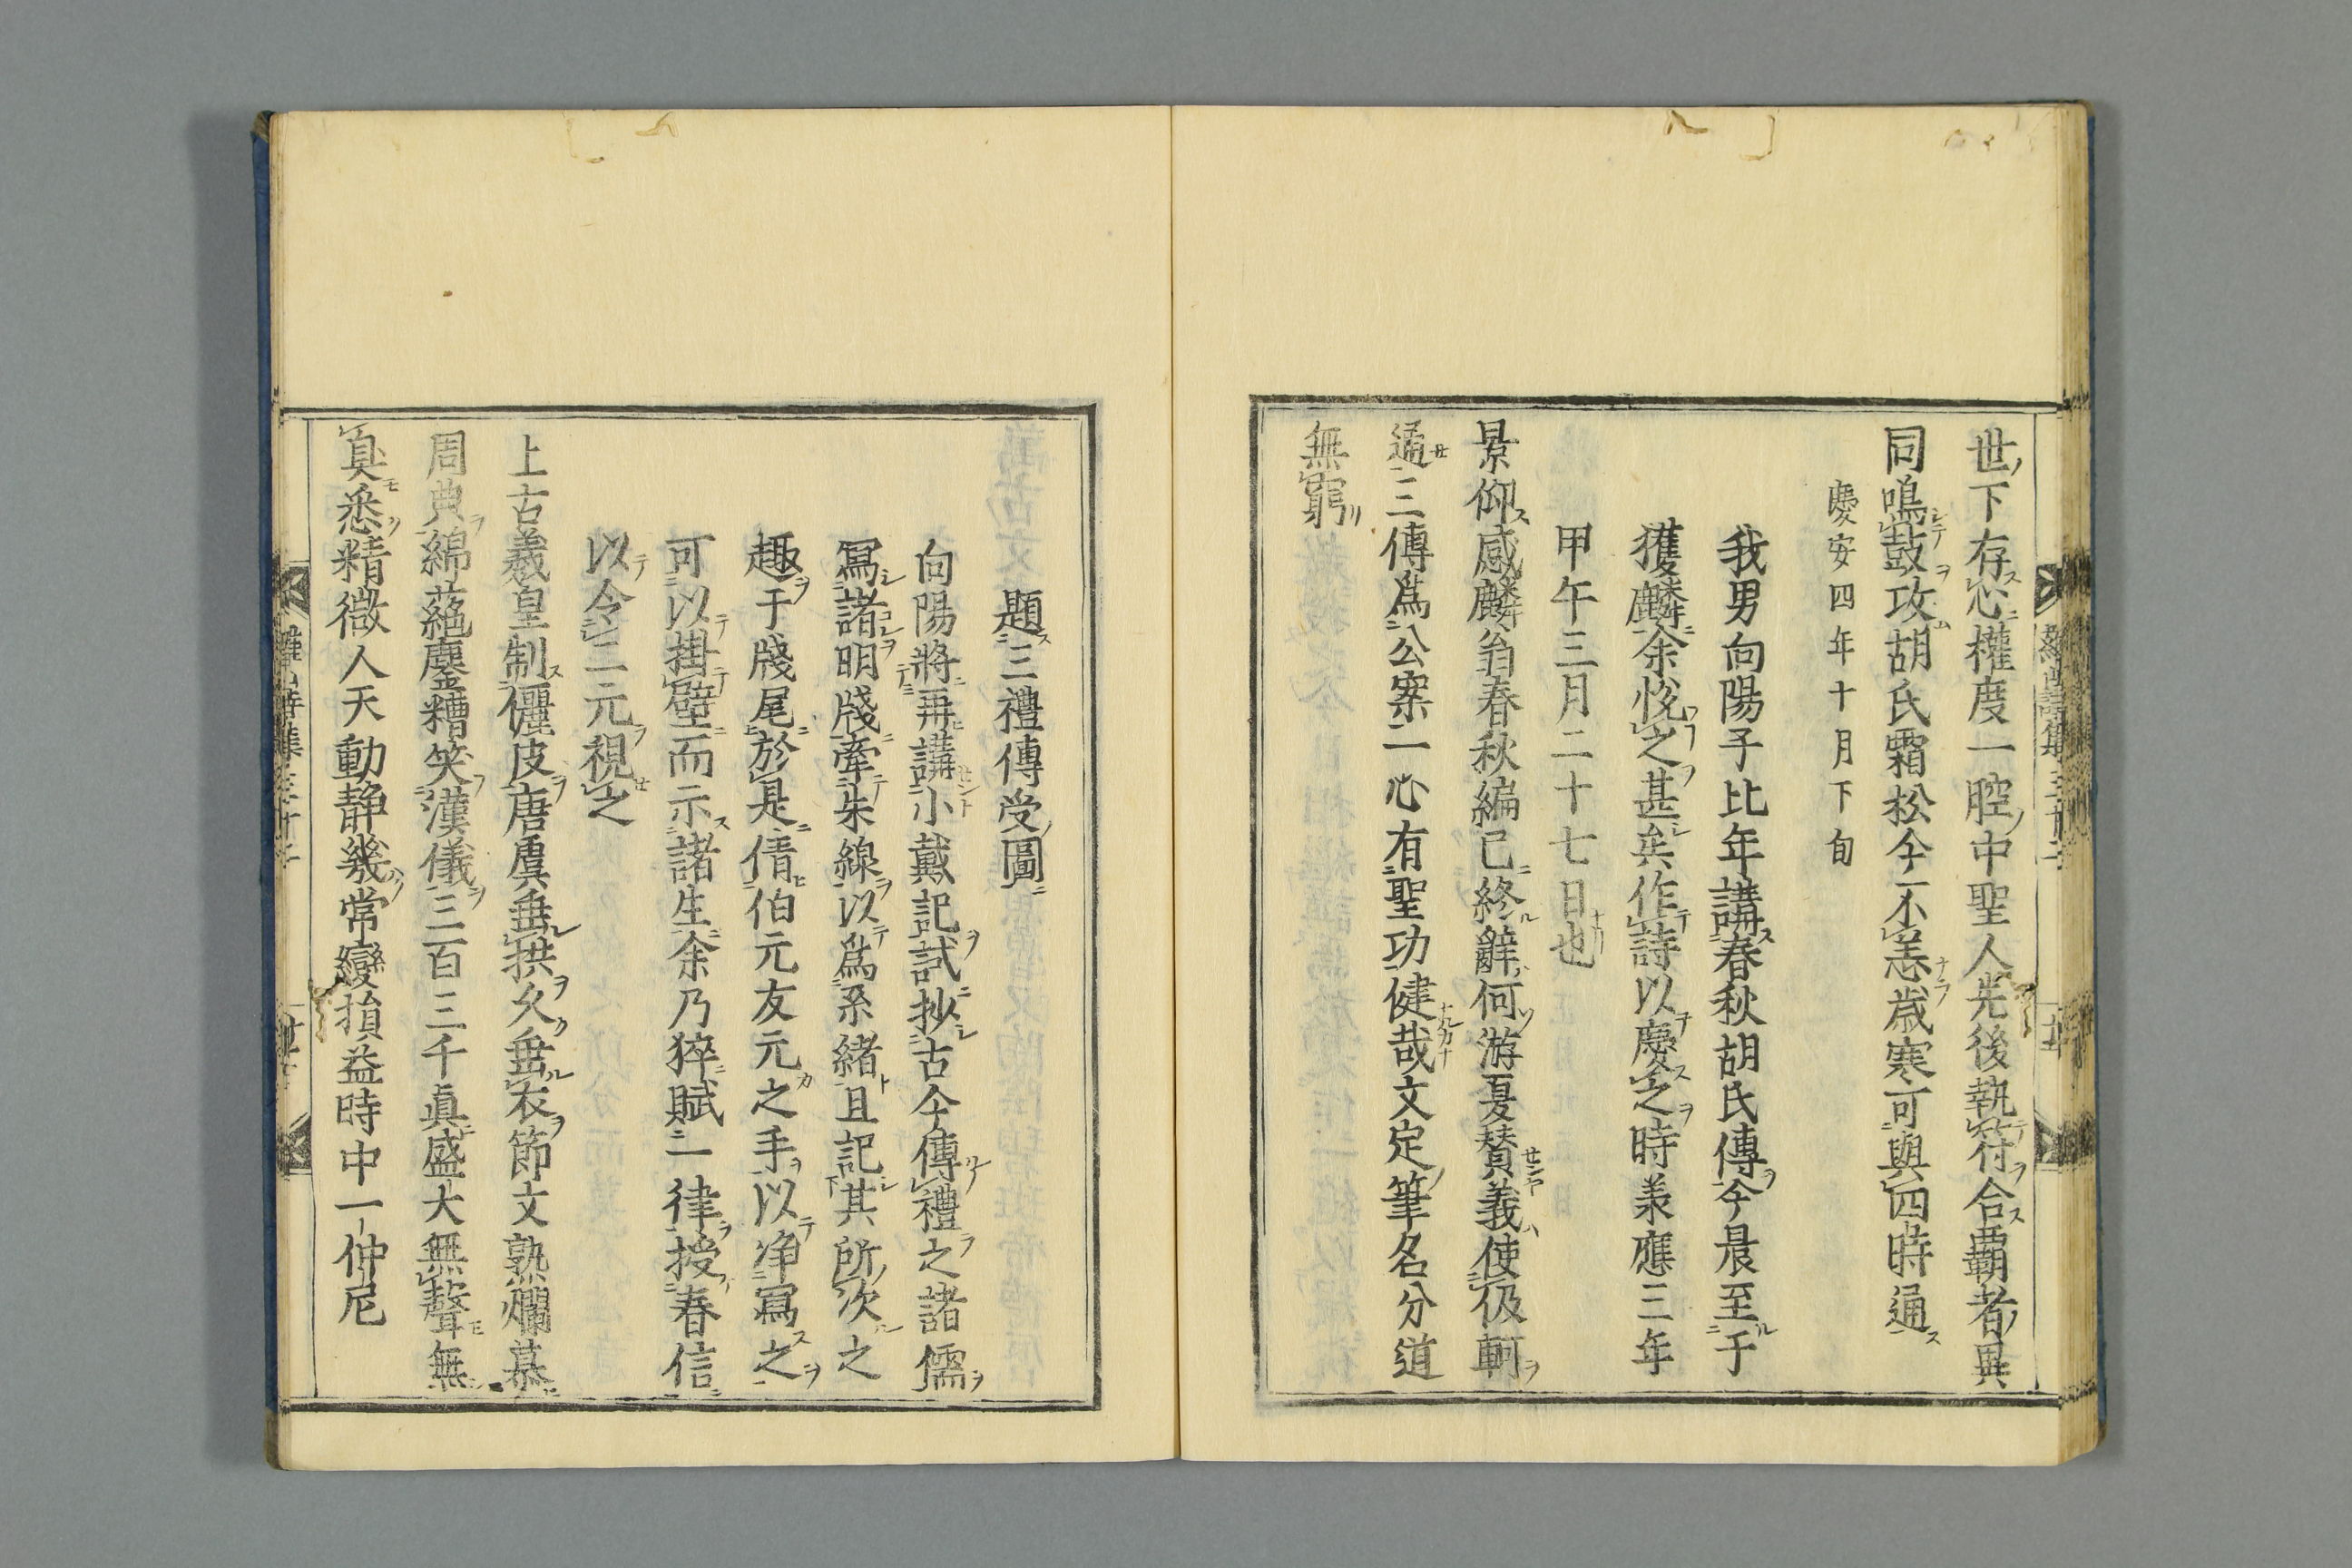 世下存心權度一腔中聖人先後執符合覇者異
同鳴鼓攻胡氏霜松今不恙歳寒可與四時通
慶安四年十月下旬
我男向陽子比年講春秋胡氏傳今晨至于
獲麟余悅之甚矣作詩以慶之時羕應三年
甲午三月二十七日也
景仰感麟翁春秋編已終辭何游夏賛義使伋軻
通三傳爲公案一心有聖功健哉文定筆名分道
無窮
題三禮傳受圖
向陽將再講小戴記試抄古今傳禮之諸儒
冩諸明牋牽朱線以爲系緒且記其所次之
趣于牋尾於是倩伯元友元之手以净冩之
可以掛壁而示諸生余乃猝賦一律授春信
以令二元視之
上古羲皇制儷皮唐虞垂拱久垂衣節文熟爛慕
周典綿蕝鏖糟笑漢儀三百三千眞盛大無聲無
臭悉精微人天動静幾常變損益時中一仲尼